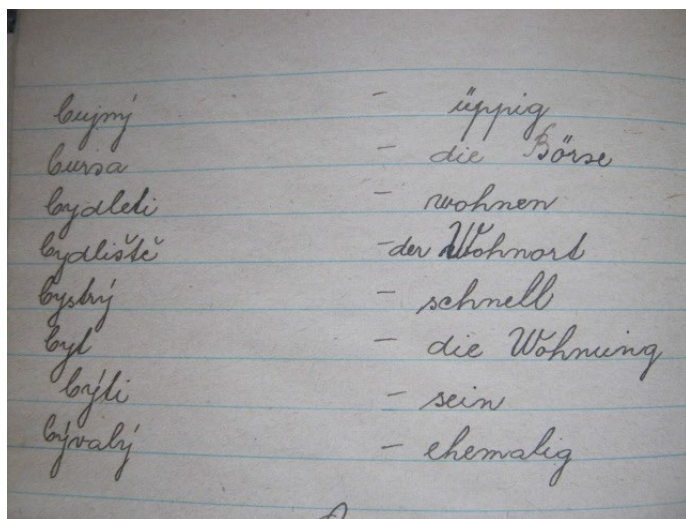 bujný - üppig
bursa - die Börse
bydleti - wohnen
bydliště - der Wohnort
bystrý - schnell
byt - die Wohnung
býti - sein
bývalý - ehemalig